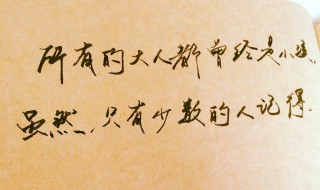 所有的大人都曾经是小孩，
虽然，只有少数的人记得.